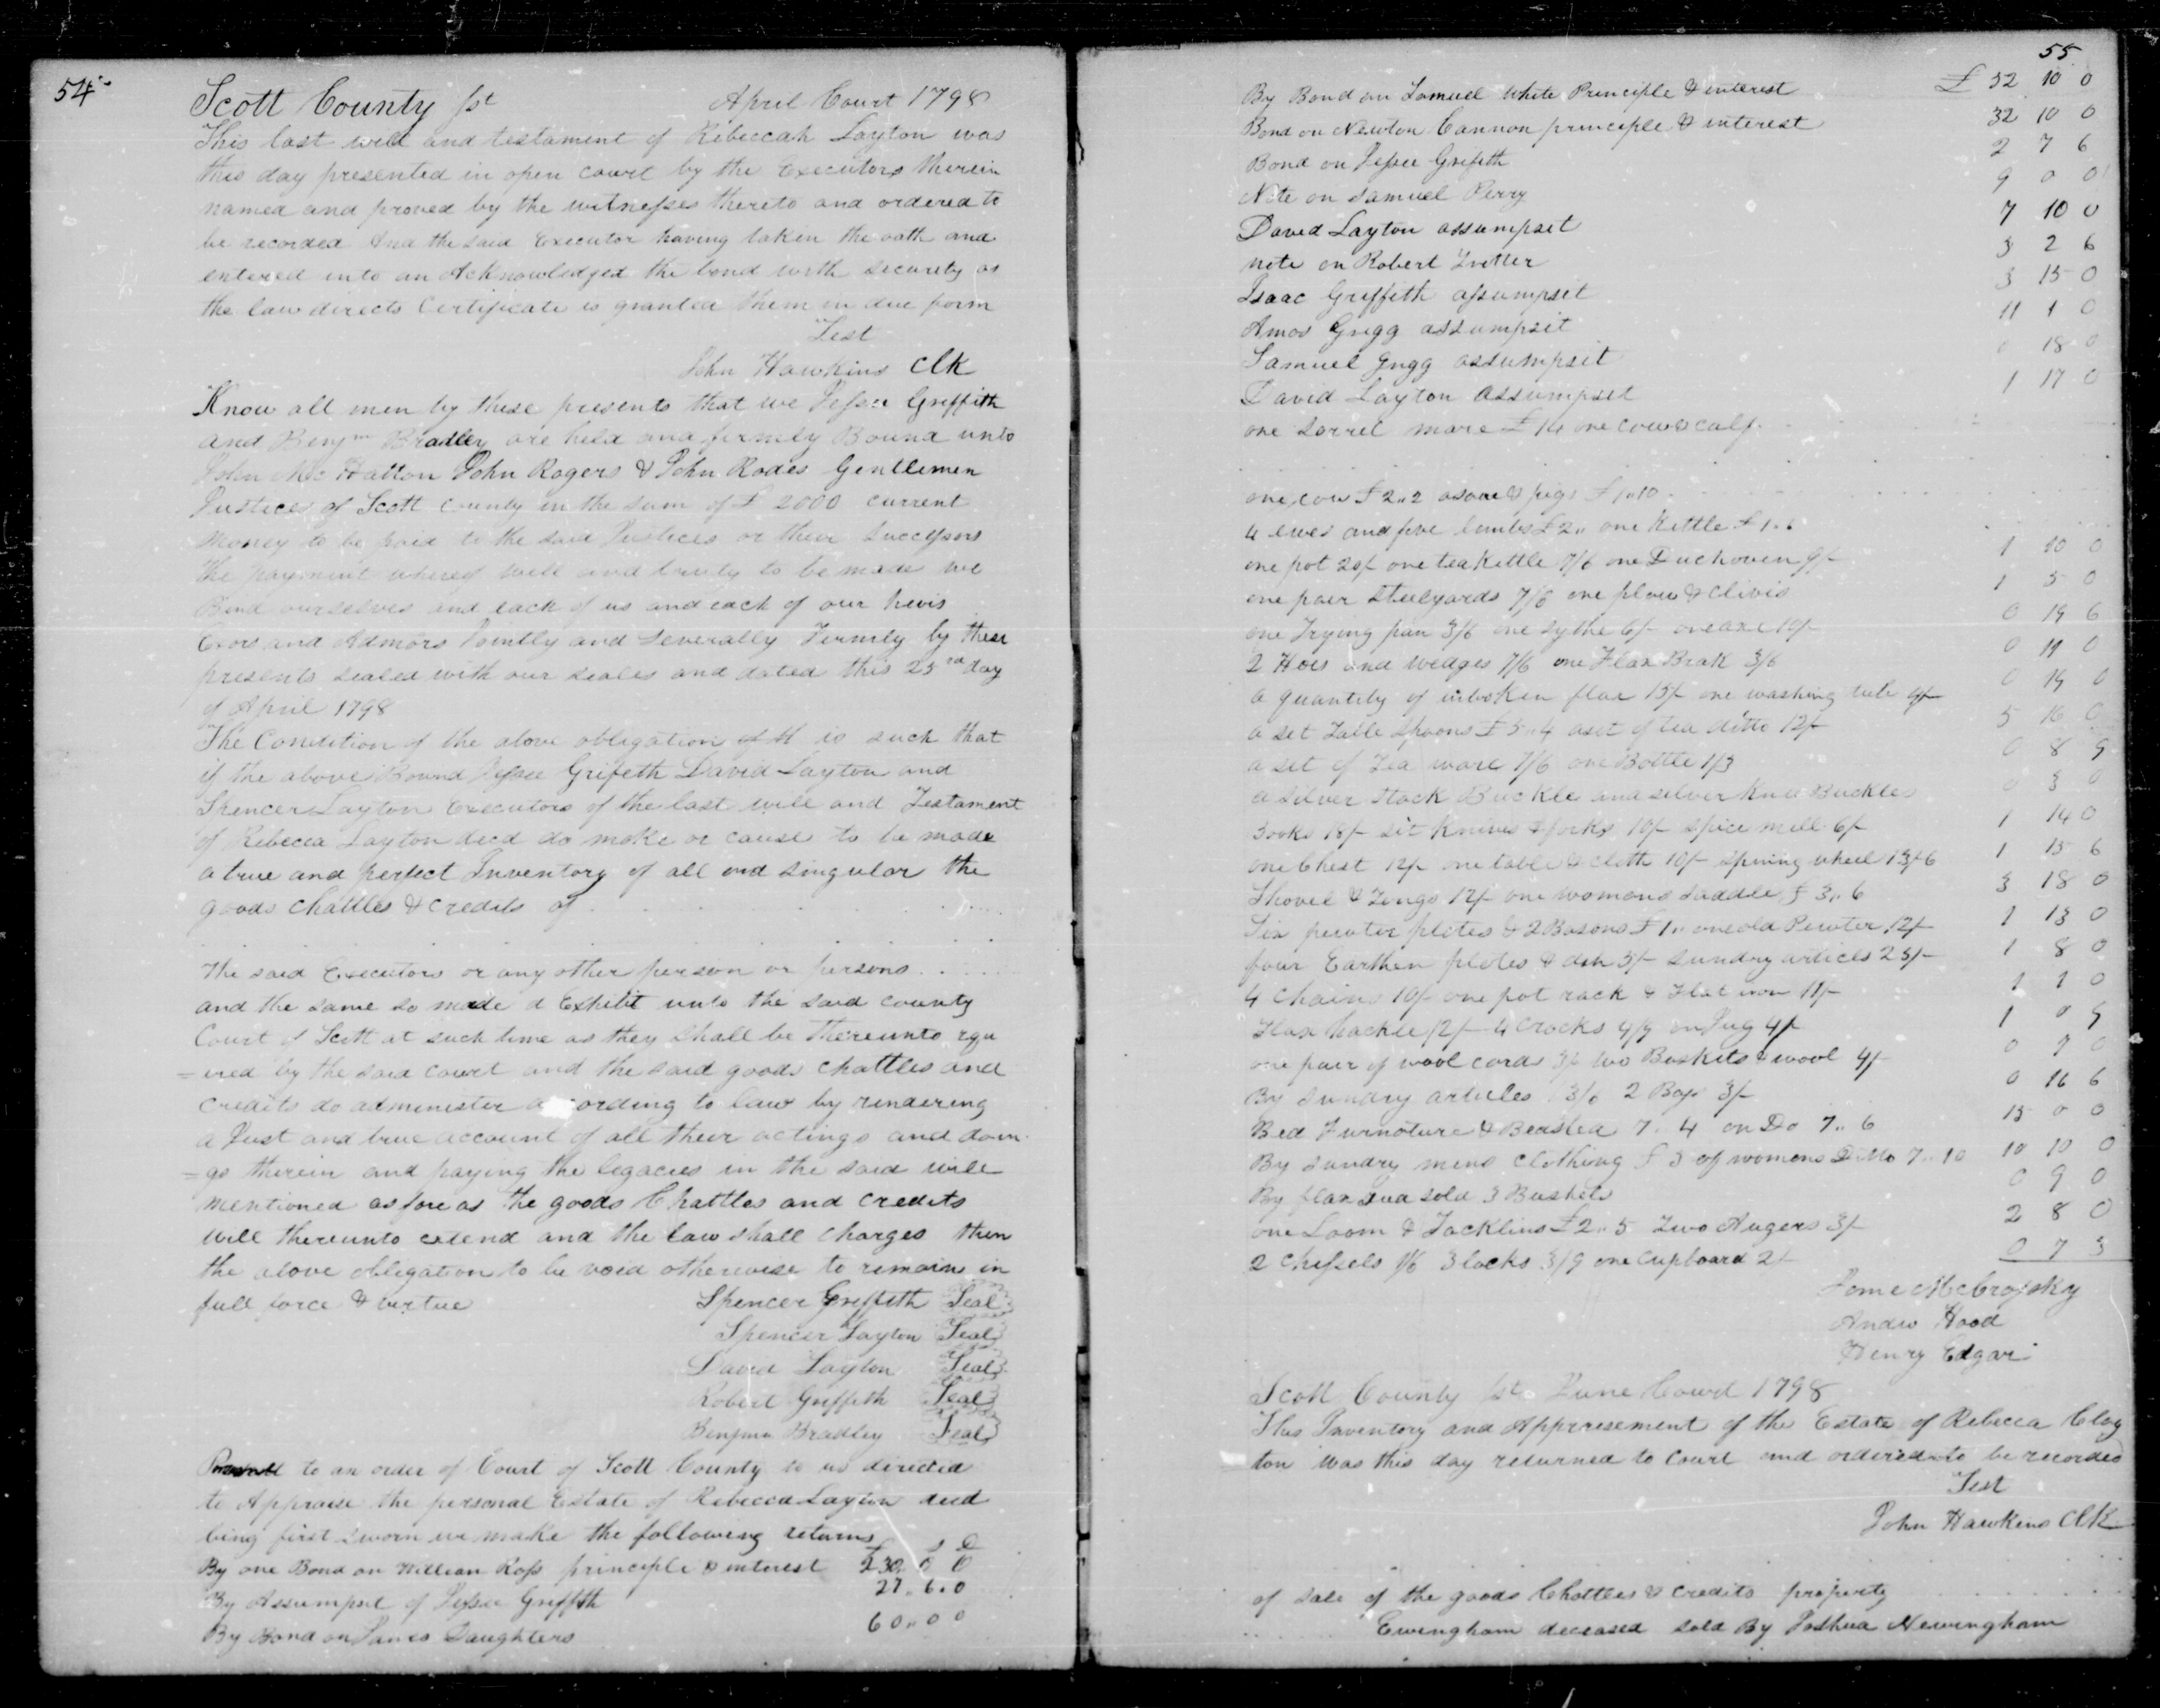 54
Scott County sst April Court 1798
This last will and testament of Rebeccah Layton was
this day presented in open court by the Executors therein
named and proved by the witnesses thereto and ordered to
be recorded And the said Executor having taken the oath and
entered into an Acknowledged the bond with security as
the law directs Certificate is granted them in due form
Test
John Hawkins Clk
Know all men by these presents that we Jessee Griffith
and Benjm Bradley are held and firmly Bound unto
John Mc Hatton John Rogers & John Rodes Gentlemen
Justices of Scott County in the sum of £ 2000 current
Money to be paid to the said Justices or their Successors
the payment whereof well and truly to be made we
Bind ourselves and each of us and each of our heirs
Exors and Admors Jointly and Severally Firmly by these
presents sealed with our seales and dated this 23rd day
of April 1798
The Condition of the above obligation is such that
if the above Bound Jessee Grifeth David Layton and
Spencer Layton Executors of the last will and Testament
of Rebecca Layton decd do make or cause to be made
a true and perfect Inventory of all and singular the
goods chattles & credits of
the said Executors or any other person or persons
and the same so made d Exhibit unto the said county
Court of Scott at such time as they shall be thereunto rqu
=ired by the said court and the said goods chattles and
credits do administer according to law by rendering
a Just and true account of all their actings and doin
=gs therein and paying the legacies in the said will
mentioned as fore as the goods Chattles and credits
will thereunto extend and the law shall charges then
the above obligation to be void otherwise to remain in
full force & virtue Spencer Griffeth Seal
Spencer Layton Seal
David Layton Seal
Robert Griffith Seal
Benjmn Bradley Seal
to an order of Court of Scott County to us directed
to Appraise the personal Estate of Rebecca Layton decd
being first sworn we make the following returns
£ s D
By one Bond on William Ross principle & interest 230 0 0
By Assumpsit of Jessee Griffith 27 .. 6 .. 0
By Bond on James Daughters 60 .. 0 0
55
By Bond on Samuel White Principle & interest £ 52 10 0
Bond on Newton Cannon principle & interest 32 10 0
Bond on Jessee Grifeth 2 7 6
Note on Samuel Perry 9 0 0
David Layton assumpset 7 10 0
note on Robert Trotter 3 2 6
Isaac Griffeth assumpset 3 15 0
Amos Grigg assumpsit 11 1 0
Samuel Grigg assumpsit 18 0
David Layton Assumpset 1 17 0
one Sorrel mare £ 14 one cow & calf
one cow £ 2..2 a sow & pigs £ 1..10
4 ewes and five lambs £ 2.. one Kettle £ 1..
one pot 20/ one teakettle 7/6 one Duchoven 9/ 1 10 0
one pair Steelyards 7/6 one plow & clivis 1 5 0
one Frying pan 3/6 one sythe 6/ one axe 10/ 0 19 6
2 Hoes and wedges 7/6 one Flax Brak 3/6 0 11 0
a quantity of unbroken flax 15/ one washing tub 4/ 0 19 0
a set Table Spoons £ 5..4 a set of tea ditto 12/ 5 16 0
a set of Tea ware 7/6 one Bottle 1/3 0 8 9
a silver Stock Buckle and silver knee Buckles 0 3 0
Books 18/ set Knives & forks 10/ spice mill 6/ 1 14 0
one Chest 12/ one table & cloth 10/ spining wheel 13/6 1 15 6
Shovel & Tongs 12/ one womons Saddle £ 3..6 3 18 0
Six pewter plates & 2 Basons £ 1.. one old Pewter 12/ 1 13 0
four Earthen plates & dish 3/ Sundry articles 25/ 1 8 0
4 Chains 10/ one pot rack & Flat iron 11/ 1 1 0
Flax hackle 12/ 4 Crocks 4/9 on Jug 4/ 1 0 9
one pair of wool cards 3/ two Baskets & wool 4/ 0 7 0
By sundry articles 2 Bags 3/ 0 16 6
Bed Furnature & Beastea 7.. 4 on Do 7.. 6 15 0 0
By sundry mens clothing £ 3 of womens Ditto 7..10 10 10 0
By flax sold 3 Bushels 0 9 0
one Loom & Tacklins £ 2..5 Two Augers 3/ 2 8 0
2 Chessels 1/6 3 locks 3/9 one Cupboard 2/ 0 7 3
Andw Hood
Henry Edgar
Scott County sst. June Court 1798
This Inventory and Apprisement of the Estate of Rebecca Clay
ton was this day returned to court and ordered to be recorded
Test
John Hawkins Clk
of sale of the goods Chattles & credits property
Ewingham deceased sold By Joshua Newingham